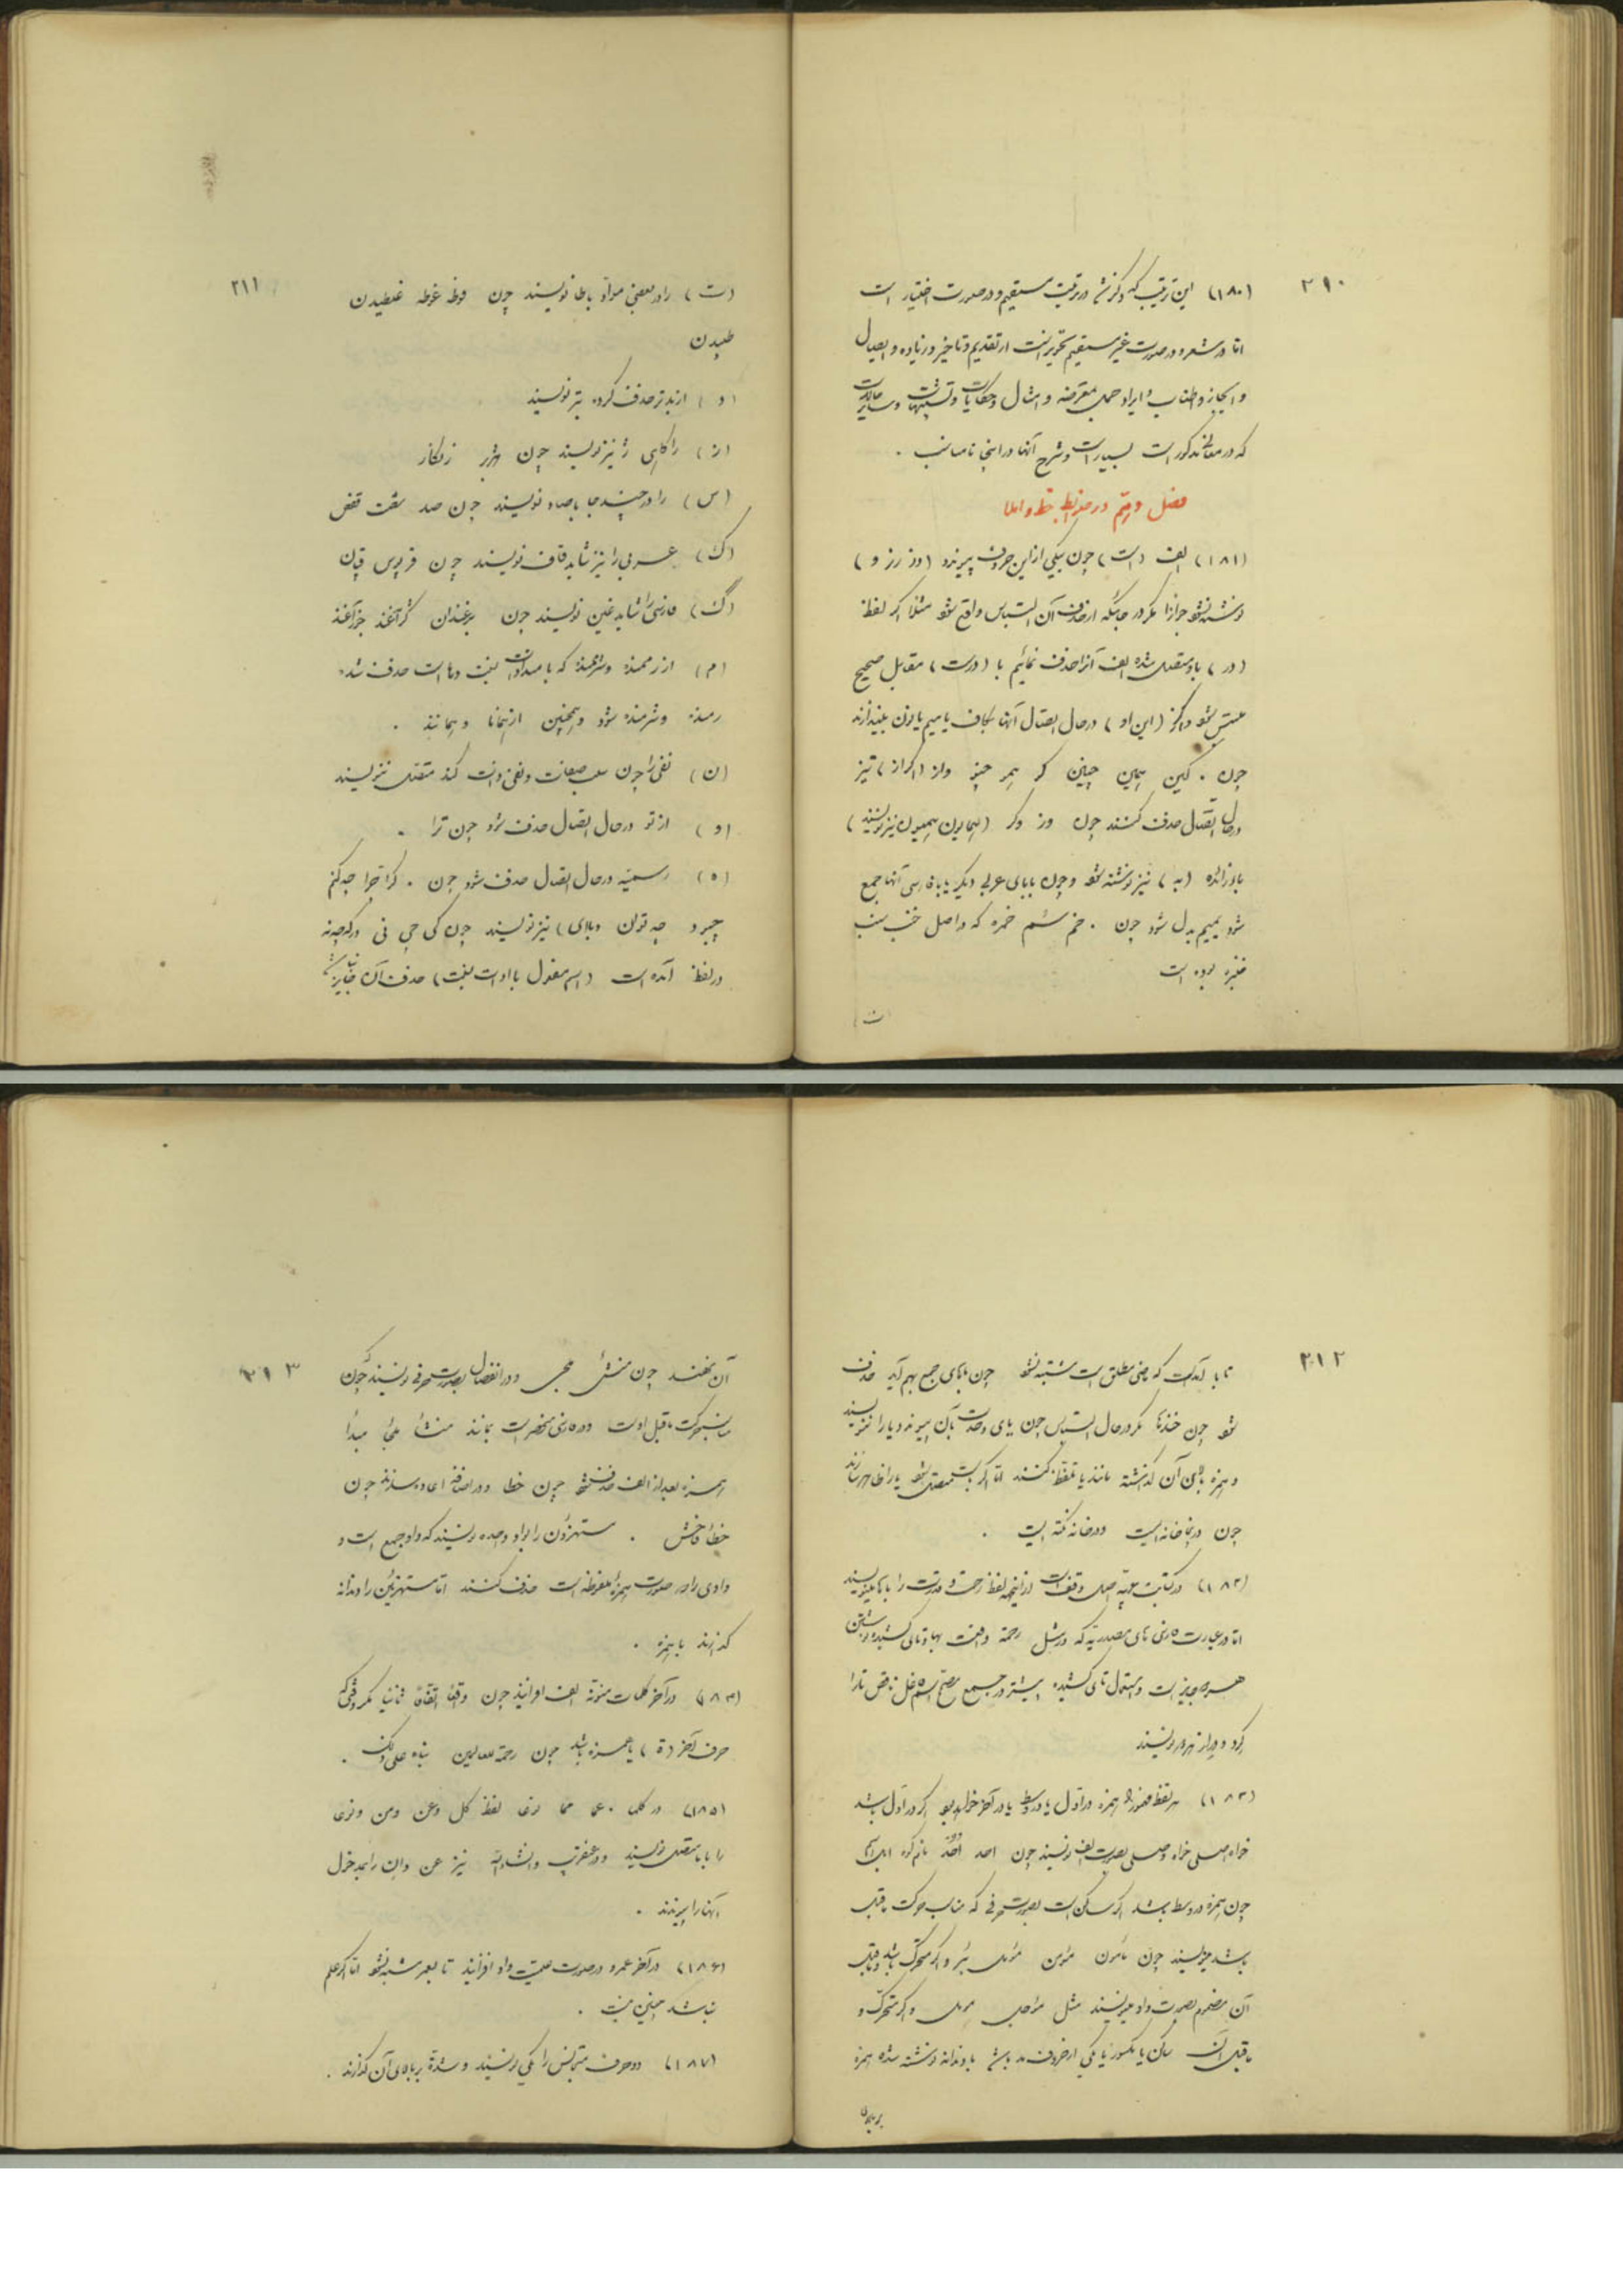 ۲۱۰
(۱۸۰) این ترتیب که ذکر شد در ترتیب مستقیم و در صورت اختیار است
اما در شعر و در صورت غیر مستقیم تحریر از تقدیم و تاخیر و زیاده و ایصال
و ایجاز و اطناب و ایراد جمل معترضه و امثال و حکایات و تشبیهات و سایر حالات
که در معانی مذکور است بسیار است و شرح آنها در اینجا نامناسب .
فصل دویم در ضوابط خط و املا
(۱۸۱) الف (است) چون بیکی از این حروف پیوندد (د ذ ر ز و)
نوشته نشود جوازا مگر در جائیکه از حذف آن التباس واقع شود مثلا اگر لفظ
(در) با او متصل شده الف آنرا حذف نمائیم با (درست) مقابل صحیح
ملتبس شود و اگر (این او) در حال اتصال آنها بکاف یا میم یا نون بیندازند
چون . کین همین چنین کو همو چنو و از (اگر از) نیز
در حال اتصال حذف کنند چون ور وگر (همایون همیون نیز نویسند)
باء زائده (به) نیز نوشته شود و چون با بای عربی دیگر یا باء فارسی آنها جمع
شود بمیم بدل شود چون . خم سم خمره که در اصل خنب سنب
خنبره بوده است
(ت
۲۱۱
(ت) را در بعضی مواد باطا نویسند چون فوطه غوطه غلطیدن
طپیدن
(د) از بدتر حذف کرده بتر نویسند
(ز) را گاهی ژ نیز نویسند چون
(س) را در چند جا باصاد نویسند چون صد شصت قفص
(ک) عربی را نیز شاید قاف نویسند چون قربوس قپان
(گ) فارسی را شاید غین نویسند چون
(م) از رممنده و شرممنده که با میم و ادات لغت و ما است حذف شده
رمنده و شرمنده شود و همچنین از همانا و همانند .
(ن) نفی را چون سلب صفات و نفی ذات کند متصل نیز نویسند
(و) از تو در حال اتصال حذف شود چون ترا .
(ه) رسمیه در حال اتصال حذف شود چون . کرا چرا چکنم
چبود چه توان و بالای) نیز نویسند چون کی چی نی
در لفظ آمده است (اسم مفعول با ادات لغت) حذف آن جایز نیست
۲۱۲
تا با آمدست که ماضی مطلق است مشتبه نشود چون بهای جمع بهم آید حذف
شود چون خندها مگر در حال التباس چون یای وحدت بآن پیوندد یا را ننویسند
و همزه بالای آن گذاشته مانند یا تلفظ کنند اما اگر باست متصل شود یا را ظاهر سازند
چون در اینجا خانه ایست و در خانه نکته ایست .
(۱۸۲) در کتابت عربیه اصل وقف است از اینجهة لفظ رحمت و قدرت را با ها مینویسند
اما در عبارت فارسی تای مصدریه که در مثل رحمة و رأفت بها و تای کشیده نوشتن
هر دو جایز است و استعمال تای کشیده بیشتر و در جمع مصحح اسم فاعل ناقص تا را
گرد و دراز هر دو نویسند
(۱۸۳) هر لفظ مهموز را همزه در اول یا در وسط یا در آخر خواهد بود اگر در اول باشد
خواه اصلی خواه وصلی بصورت الف نویسند چون احد اخذ
چون همزه در وسط باشد اگر ساکن است بصورت حرفی که مناسب حرکت ماقبل
باشد مینویسند چون مأمون مؤمن بئر و اگر متحرک باشد و ماقبل
آن مضموم بصورت واو مینویسند مثل و اگر متحرک و
ماقبل آن ساکن یا مکسور یا یکی از حروف مد باشد با دندانه نوشته شده همزه
بر بالای
۲۱۳
آن نهند چون و در انفصال بصورت حرفی نویسند که چون
مناسب حرکت ماقبل اوست و در فارسی منحصر است بمانند منشأ ملجأ مبدأ
همزه بعد از الف حذف شود چون خطا و در اضافه اعاده سازند چون
خطاء فاحش . مستهزؤن را بواو واحده نویسند که واو جمع است و
واوی را در صورت همزه ملفوظه است حذف کنند اما مستهزئین را دندانه
گذارند با همزه .
(۱۸۴) در آخر کلمات منونه الف افزایند چون وقتا اتفاقا ثانیا مگر وقتی که
حرف آخر (ة) یا همزه باشد چون رحمة للعالمین بناء علی ذلک .
(۱۸۵) در کلما عما مما لفظ کل و عن و من
را با ما متصل نویسند و در عنقریب و انشاءالله نیز عن و ان را بمدخول
آنها را پیوندند .
(۱۸۶) در آخر عمرو در صورت علمیت واو افزایند تا بعمر مشتبه نشود اما اگر علم
نباشد چنین نیست .
(۱۸۷) دو حرف متجانس را یکی نویسند و شده بر بالای آن گذارند .